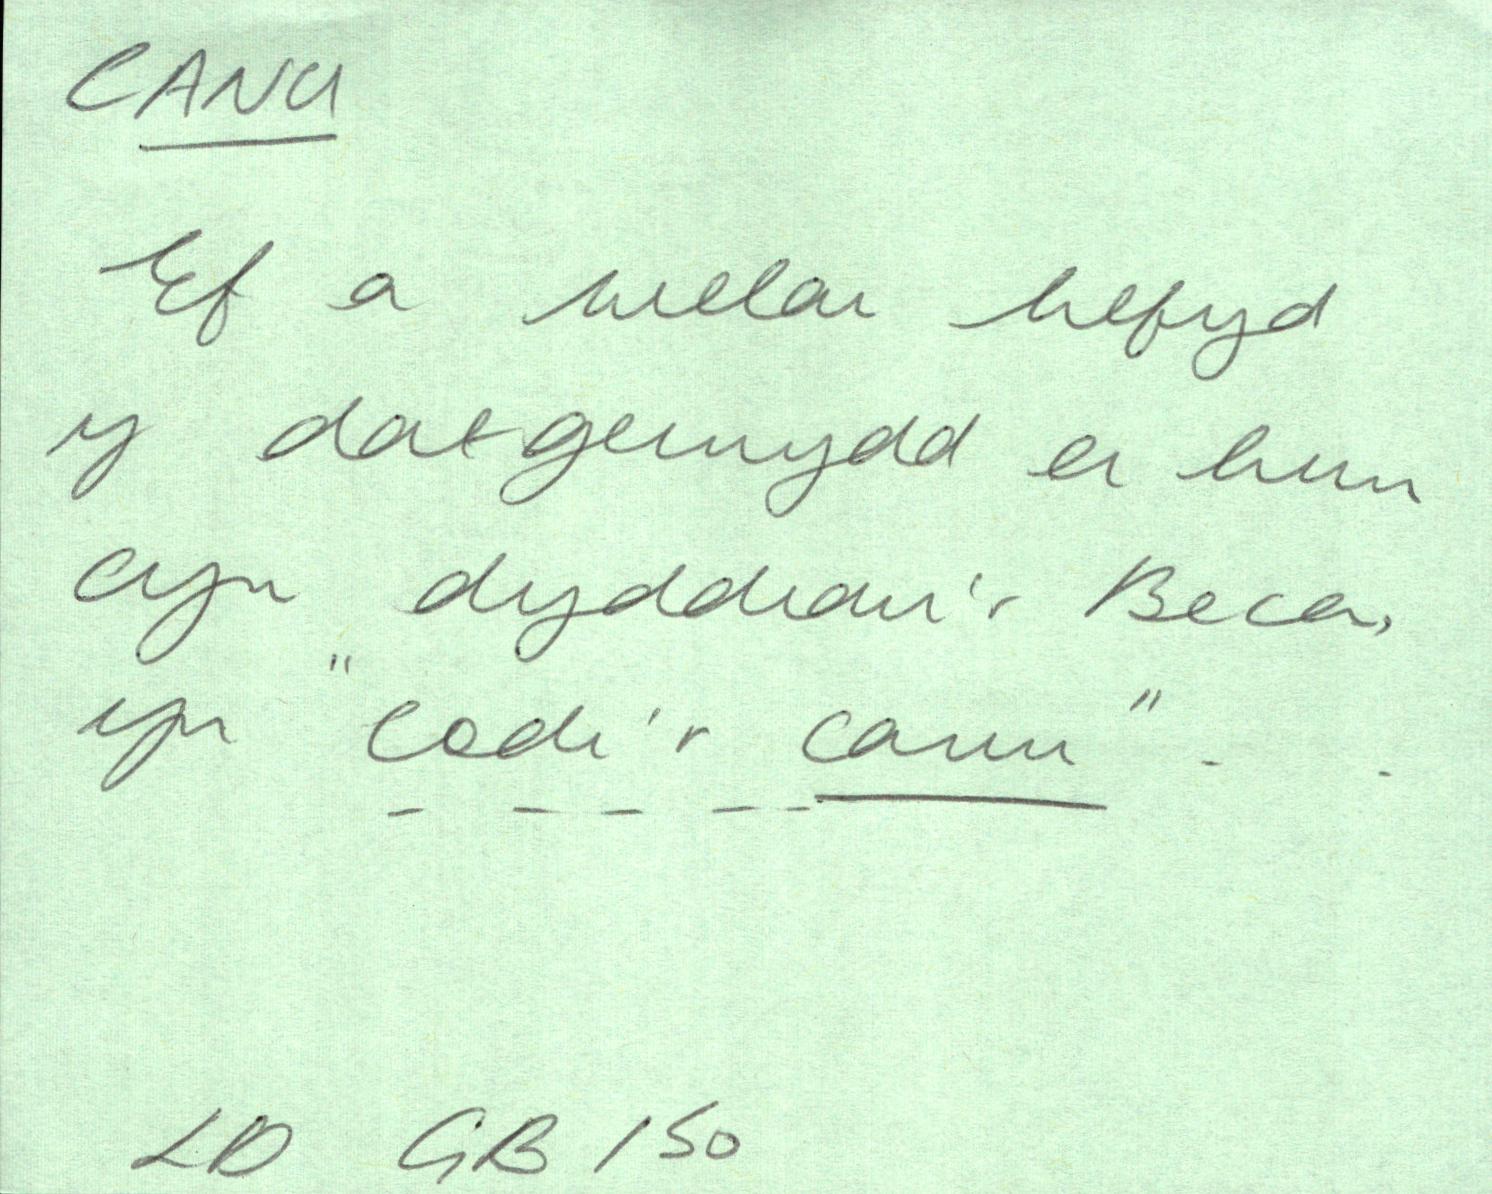 CANU
Ef a welai hefyd
y datgeinydd ei hun
cyn dyddiau'r Beca,
yn "codi'r canu". .
LD GB 150